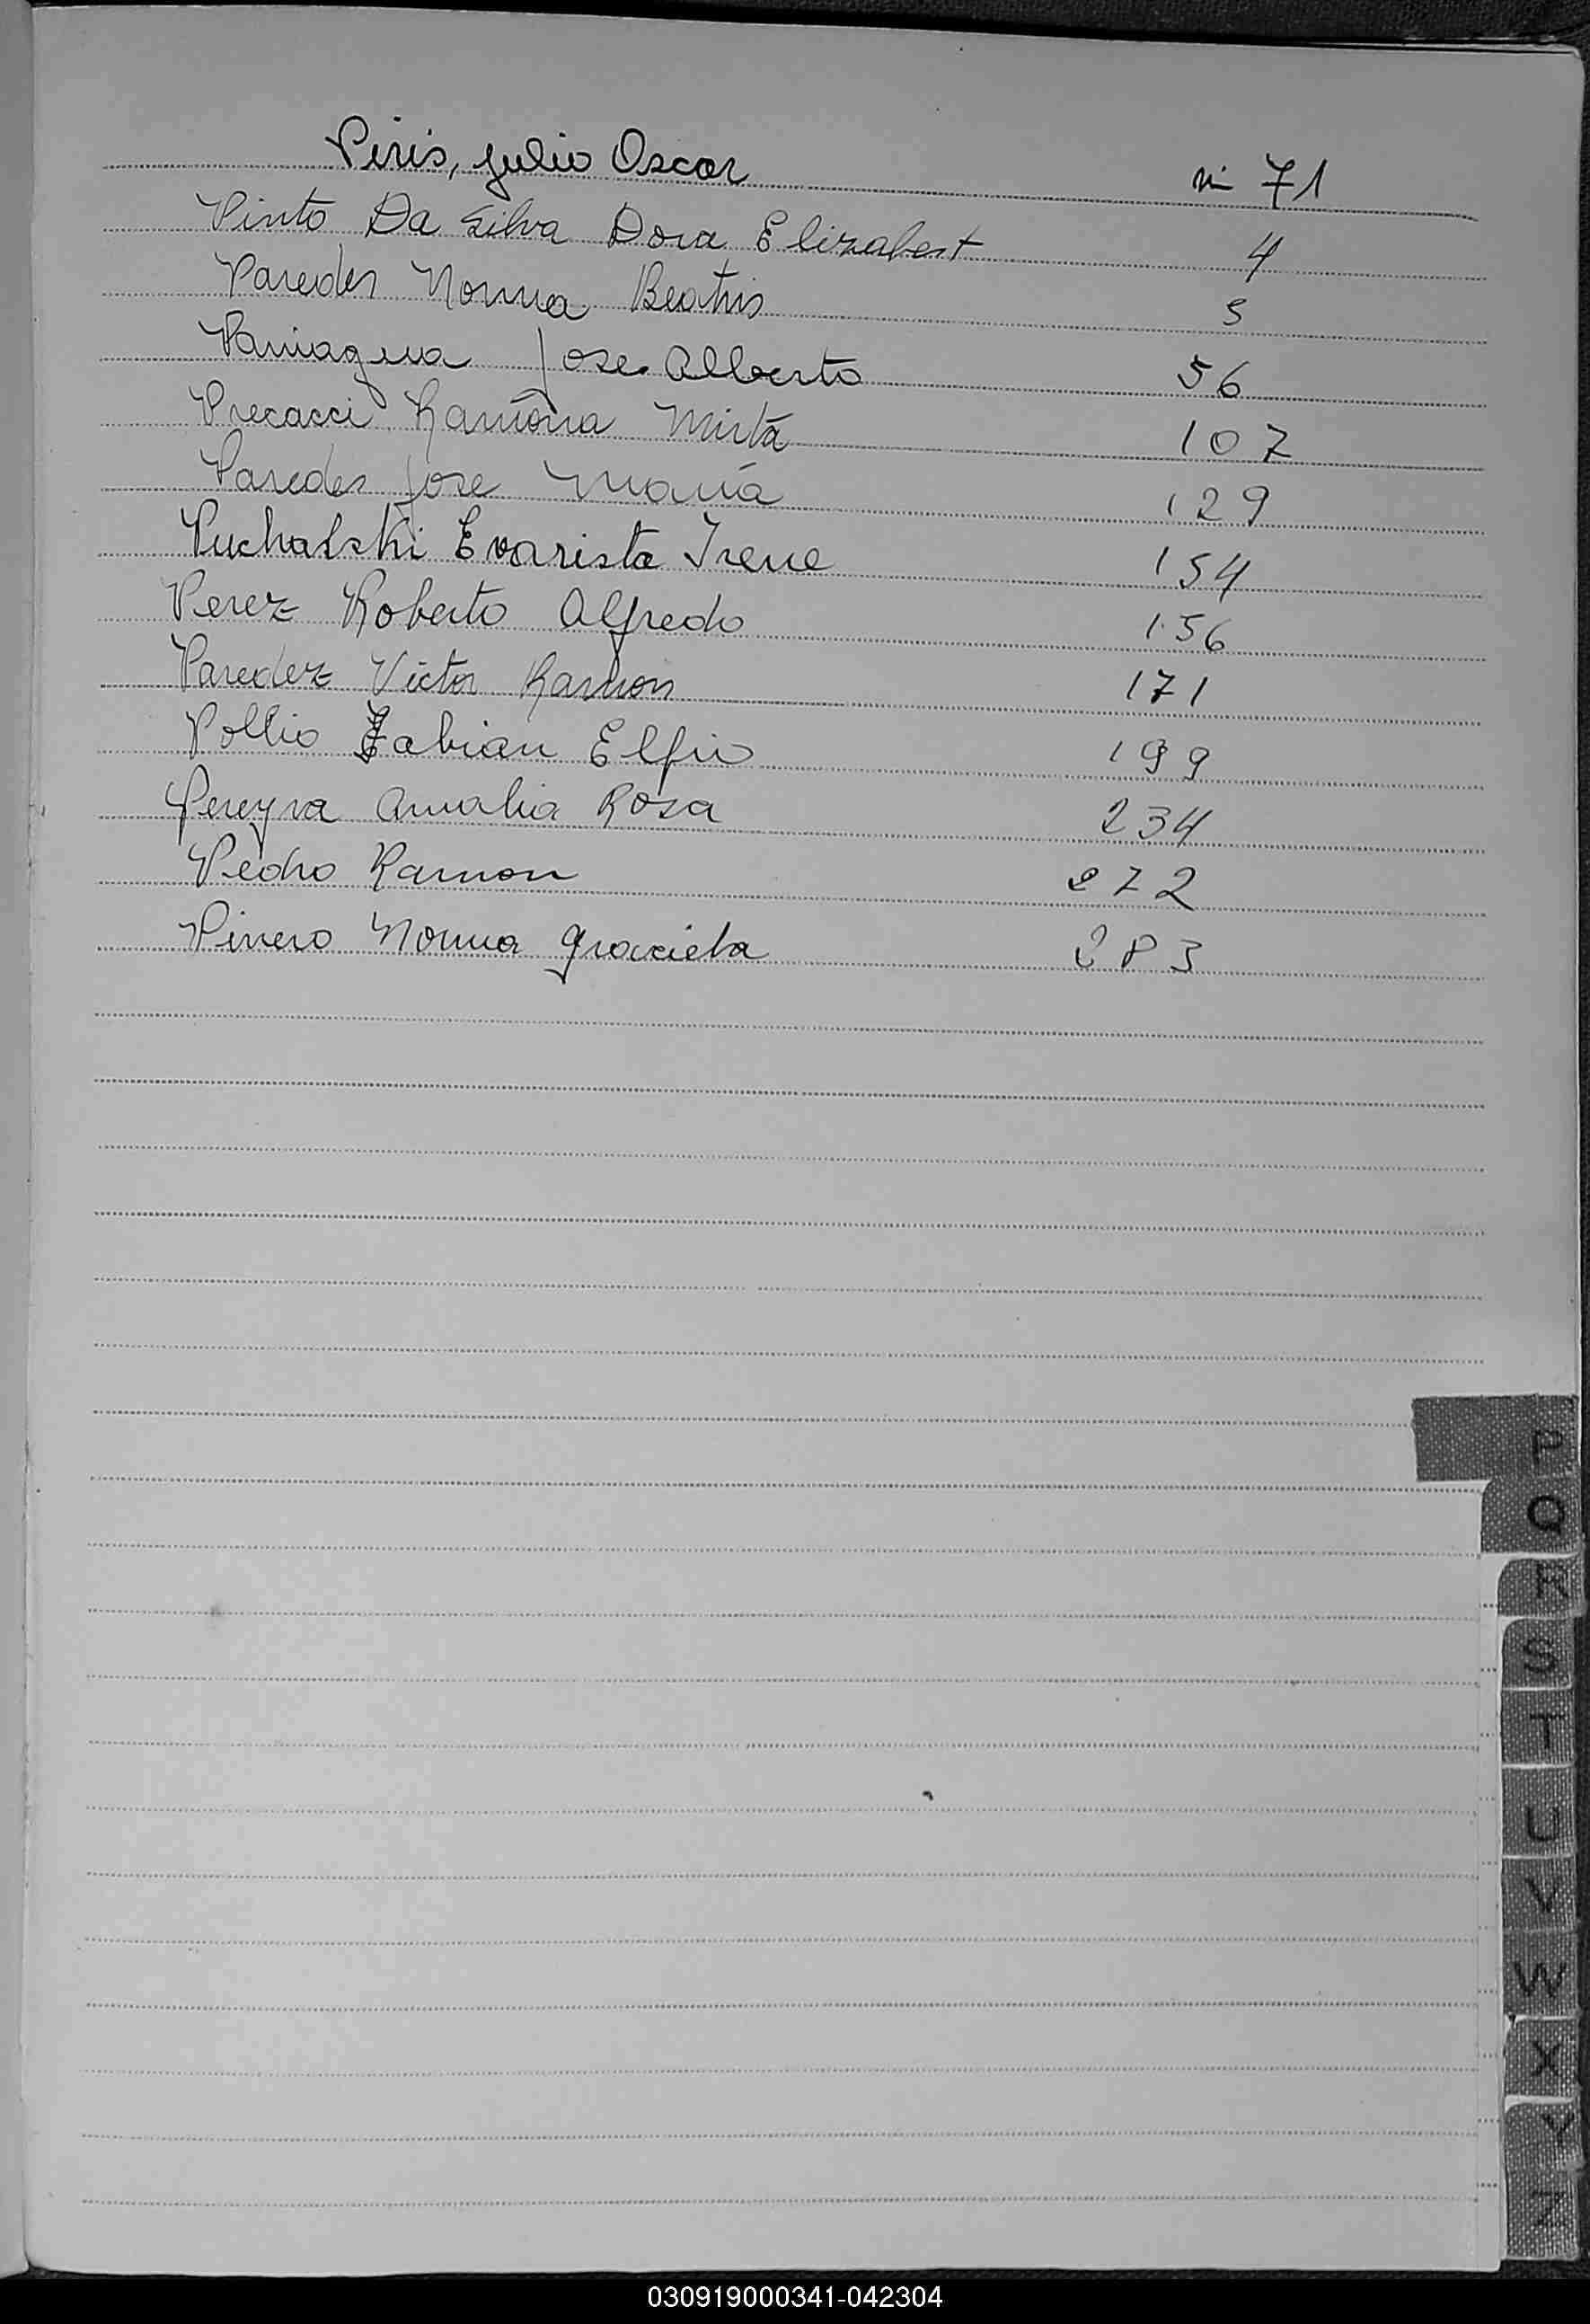 Piris, Julio Oscar nº 71
Pinto Da Silva Dora Elizabest 4
Paredes Norma Beatris 5
Paniagua Jose Alberto 56
Precacci Ramóna Mirta 107
Paredes Jose María 129
Puchalski Evarista Irene 154
Perez Roberto Alfredo 156
Paredez Victor Ramon 171
Pollio Fabian Elfio 199
Pereyra Amalia Rosa 234
Pedro Ramon 272
Pinero Norma Graciela 283
P
Q
R
S
T
U
V
W
X
Y
Z
030919000341-042304